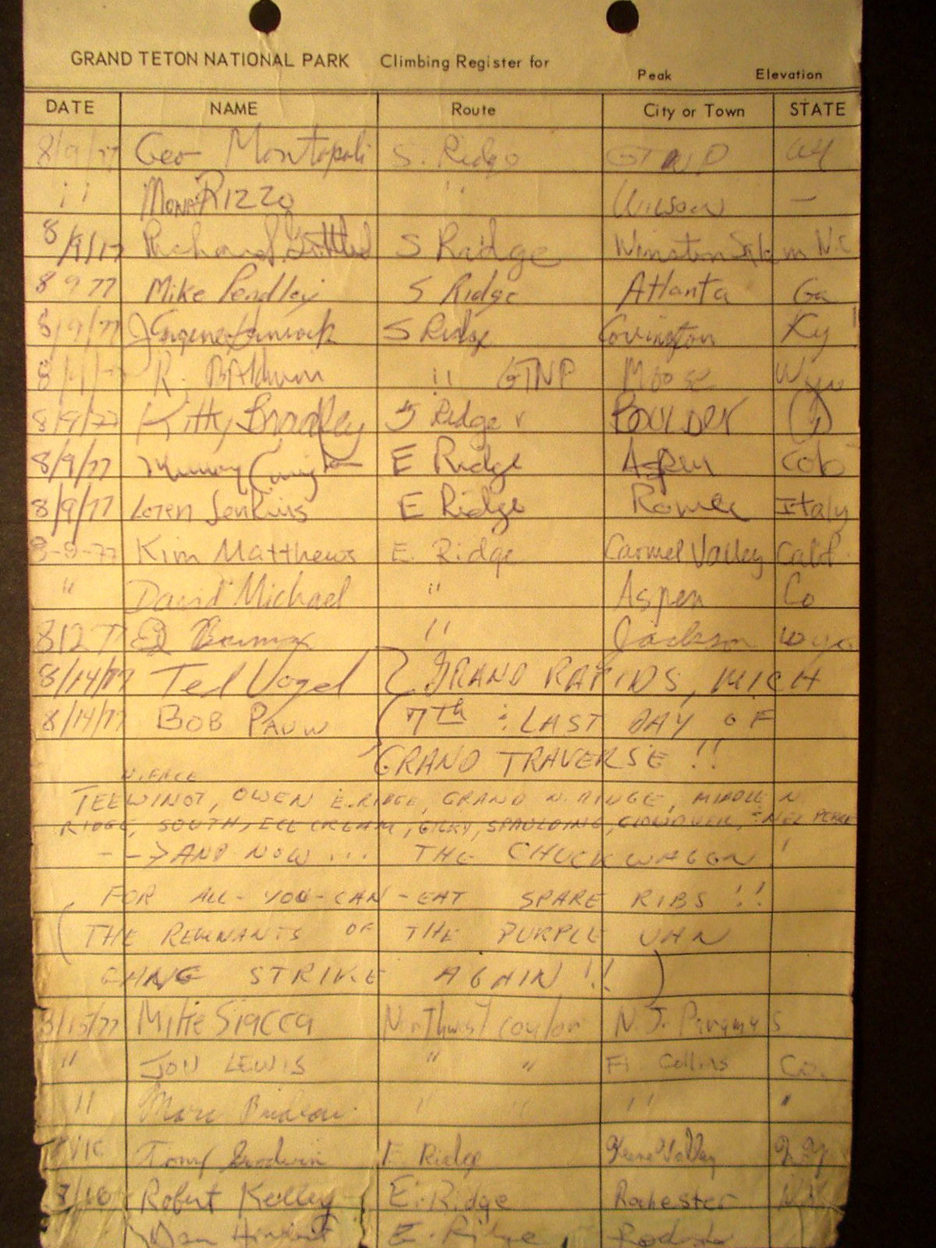 GRAND TETON NATIONAL PARK Climbing Register for
Peak Elevation
DATE NAME Route City or Town STATE
8/9/77 Geo Montopoli S. Ridge GTNP Wy
" Mona Rizzo " Wilson —
8/9/77 Richard S Ridge Winston Salem N.C
8 9 77 Mike Pendley S Ridge Atlanta Ga
8/9/77 J Eugene S Ridge Covington Ky
R. Baldwin " GTNP Moose Wyo
8/9/77 Kitty Bradley S Ridge BOULDER
8/9/77 E Ridge Aspen Colo
8/9/77 Loren Jenkins E Ridge Rome Italy
8-9-77 Kim Matthews E. Ridge Carmel Valley Calif.
" David Michael " Aspen Co
812 77 Ed " Jackson Wyo
8/14/77 Ted Vogel GRAND RAPIDS, MICH
8/14/77 BOB PAUW (7th : LAST DAY OF
GRAND TRAVERSE !!
N. FACE
TEEWINOT, OWEN E. RIDGE, GRAND N. RIDGE, MIDDLE N
RIDGE, SOUTH, ICE CREAM, GILKY, SPAULDING, CLOUDVEIL,
--> AND NOW ... THE CHUCKWAGON !
FOR ALL-YOU-CAN-EAT SPARE RIBS !!
(THE REMNANTS OF THE PURPLE VAN
GANG STRIKE AGAIN !! )
8/15/77 Mike Siacca Northwest Couloir N.J. Paramus
" JON LEWIS " " Ft Collins Co.
" Marc " " " "
Tony Goodwin E. Ridge Keene Valley N.Y.
8/16 Robert Kelley E. Ridge Rochester
E. Ridge